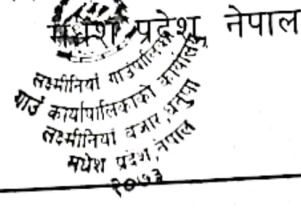 मधेश प्रदेश, नेपाल
लक्ष्मीनियां गाउँपालिका
गाउँ कार्यपालिकाको कार्यालय
लक्ष्मीनियां बजार, धनुषा
मधेश प्रदेश, नेपाल
२०७३